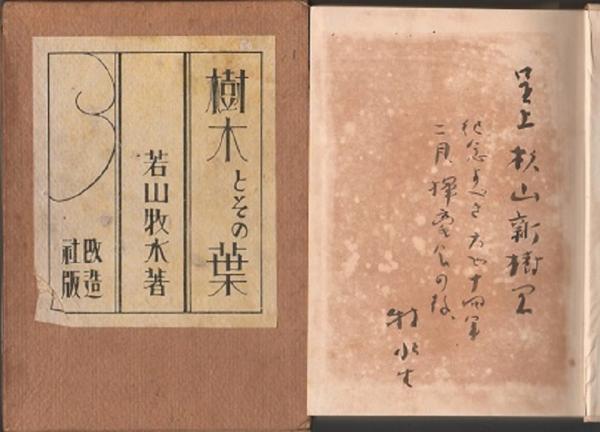 樹木とその葉
若山牧水著
改造
社版
呈上 杉山新樹
紀念すべき大正十四年
二月 揮毫会の
牧水生